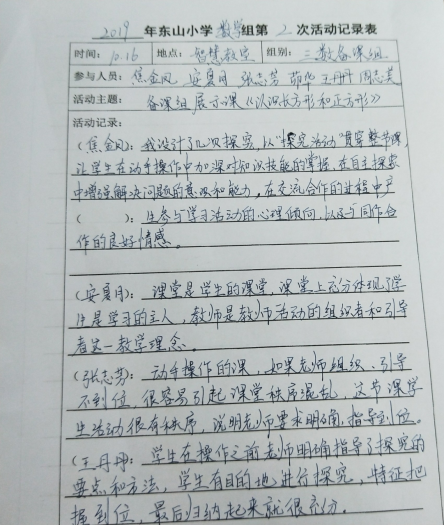 2019 年东山小学数学组第 2 次活动记录表
时间: 10.16 地点: 智慧教室 组别: 三数备课组
参与人员: 焦金凤 安夏月 张志芳 茹华 王丹丹 周志美
活动主题: 备课组展示课《认识长方形和正方形》
活动记录:
(焦金凤): 我设计了几次探究,以“探究活动”贯穿整节课,
让学生在动手操作中加深对知识技能的掌握,在自主探索
中增强解决问题的意识和能力,在交流合作的过程中产
( ): 生参与学习活动的心理倾向,以及与同伴合
作的良好情感。
(安夏月): 课堂是学生的课堂,课堂上充分体现了学
生是学习的主人,教师是教师活动的组织者和引导
者这一教学理念
(张志芳): 动手操作的课,如果老师组织、引导
不到位,很容易引起课堂秩序混乱,这节课学
生活动很有秩序,说明老师要求明确,指导到位。
(王丹丹): 学生在操作之前老师明确指导了探究的
要点和方法,学生有目的地进行探究,特征把
握到位,最后归纳起来就很充分。